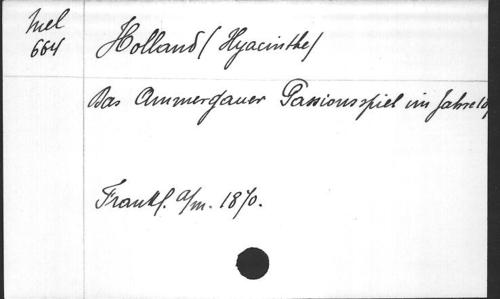 Mel
664
Holland (Hyacinthe)
Das Ammergauer Passionsspiel im Jahre
Frankf. a/m. 1870.